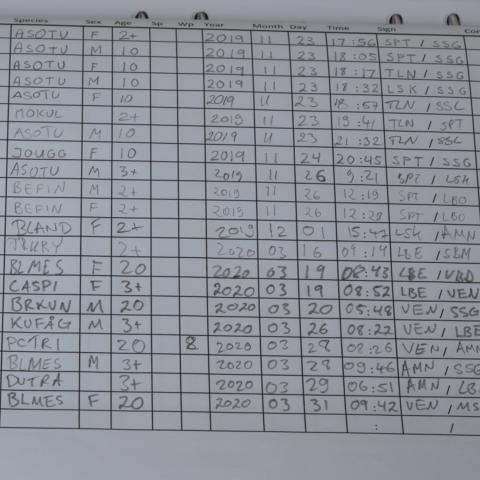 Species Sex Age Sp Wp Year Month Day Time Sign
ASOTU F 2+ 2019 11 23 17:56 SPT / SSG
ASOTU M 10 2019 11 23 18:05 SPT / SSG
ASOTU F 10 2019 11 23 18:17 TLN / SSG
ASOTU M 10 2019 11 23 18:32 LSK / SSG
ASOTU F 10 2019 11 23 18:57 TLN / SSC
MOKUL 2+ 2019 11 23 19:41 TLN / SPT
ASOTU M 10 2019 11 23 21:32 TLN / SSC
JOUGG F 10 2019 11 24 20:45 SPT / SSG
ASOTU M 3+ 2019 11 26 9:21 SPT / LSK
BEFIN M 2+ 2019 11 26 12:19 SPT / LBO
BEFIN F 2+ 2019 11 26 12:28 SPT / LBO
BLAND F 2+ 2019 12 01 15:47 LSK / AMN
2+ 2020 03 16 09:14 LBE / SBM
BLMES F 20 2020 03 19 08:43 LBE /
CASPI F 3+ 2020 03 19 08:52 LBE / VEN
BRKUN M 20 2020 03 20 05:48 VEN / SSG
KUFÅG M 3+ 2020 03 26 08:22 VEN / LBE
PCTRI 20 8 2020 03 28 08:26 VEN / AMN
BLMES M 3+ 2020 03 28 09:46 AMN / SSG
DUTRA 3+ 2020 03 29 06:51 AMN / LB
BLMES F 20 2020 03 31 09:42 VEN / MS
: /